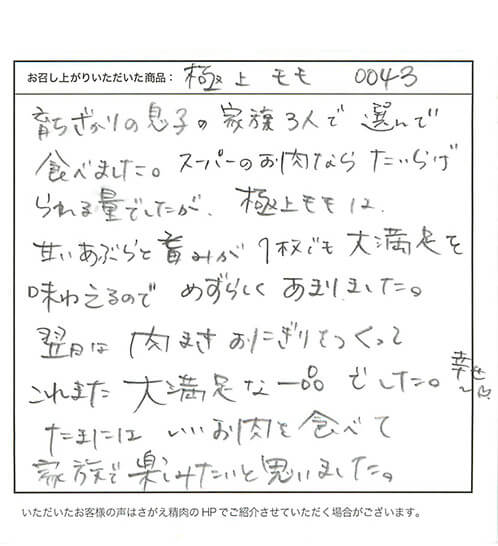 お召し上がりいただいた商品： 極上モモ 0043
育ちざかりの息子の家族3人で選んで
食べました。スーパーのお肉なら たいらげ
られる量でしたが、極上モモは、
甘いあぶらと旨みが1枚でも大満足を
味わえるので めずらしく あまりました。
翌日は 肉まきおにぎりをつくって
これまた 大満足な一品 でした。幸せ〜♡
たまには いいお肉を食べて
家族で楽しみたいと思いました。
いただいたお客様の声はさがえ精肉のHPでご紹介させていただく場合がございます。